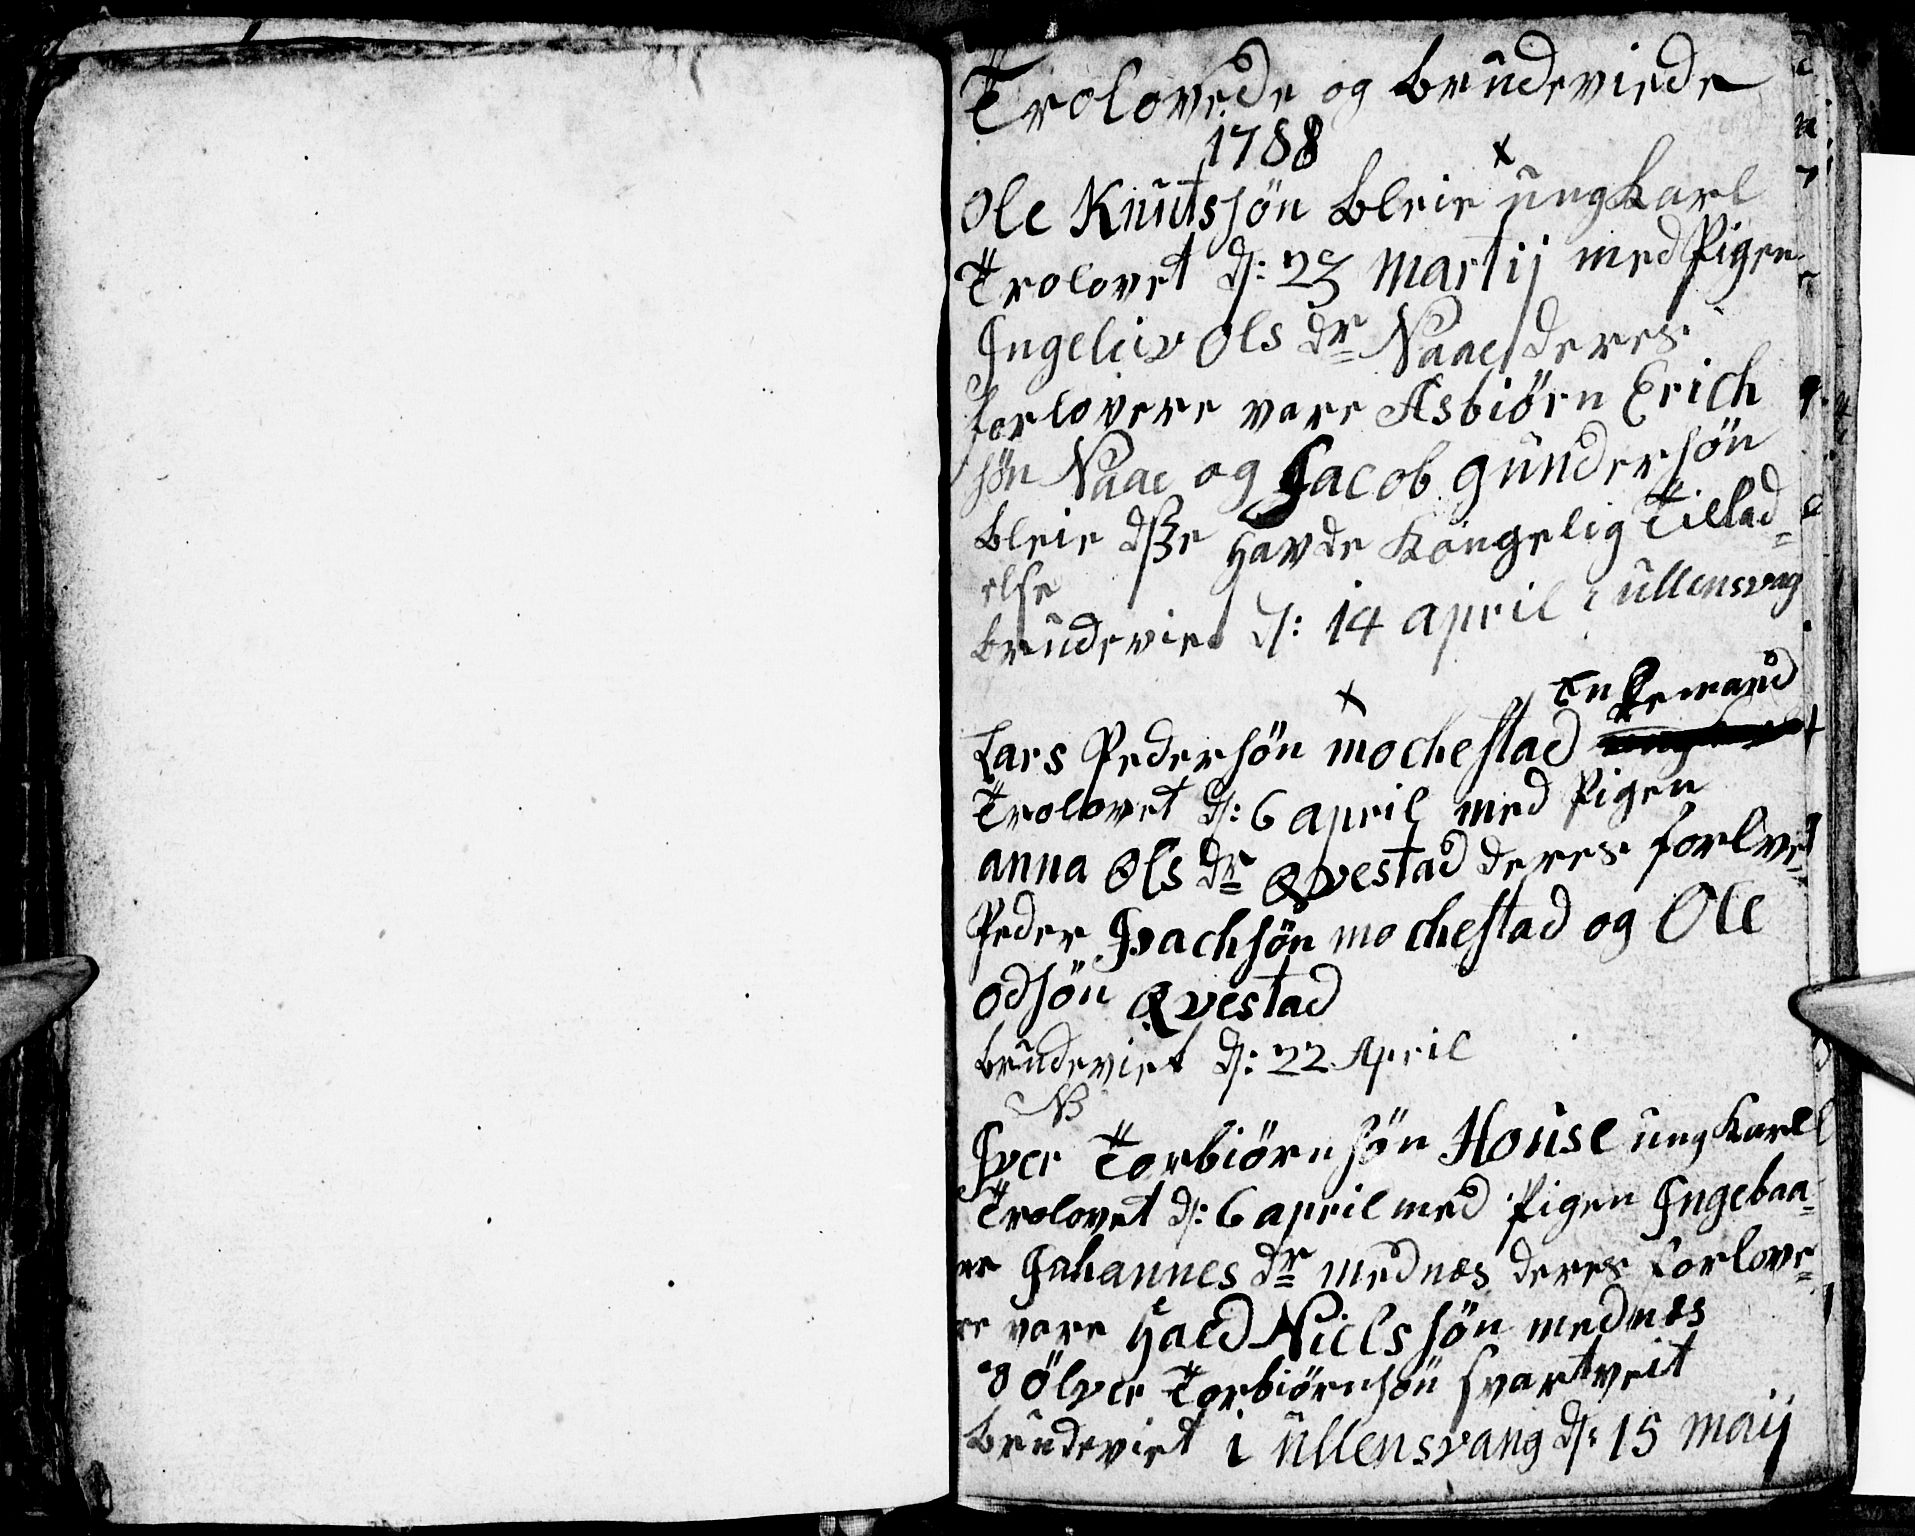 Trolovede og brudeviede
1788
x
Ole Knutsøn Bleie ungkarl
Trolovet d: 23 Martij med Pigen
Ingeliiv Ols dr Naae deres
forlovere vare Asbiørn Erich
søn Naae og Jacob Gundersøn
Bleie disse havde Kongelig Tillad=
else
brudeviet d: 14 april i ullensvag
x Enkemand
Lars Pedersøn mochestad
Trolovet d: 6 april med Pigen
anna Ols dr Qvestad deres forlve=
Peder Ivachsøn mochestad og Ole
odsøn Qvestad
brudeviet d: 22 April
NB
Iver Torbiørnsøn House ungkarl
Trolovet d: 6 april med Pigen Ingebaa=
re Johannes dr mednæs deres forlove=
re vare Hald Nielssøn mednæs
og Ølver Torbiørnsøn Svartveit
brudeviet i ullensvang d: 15 maij